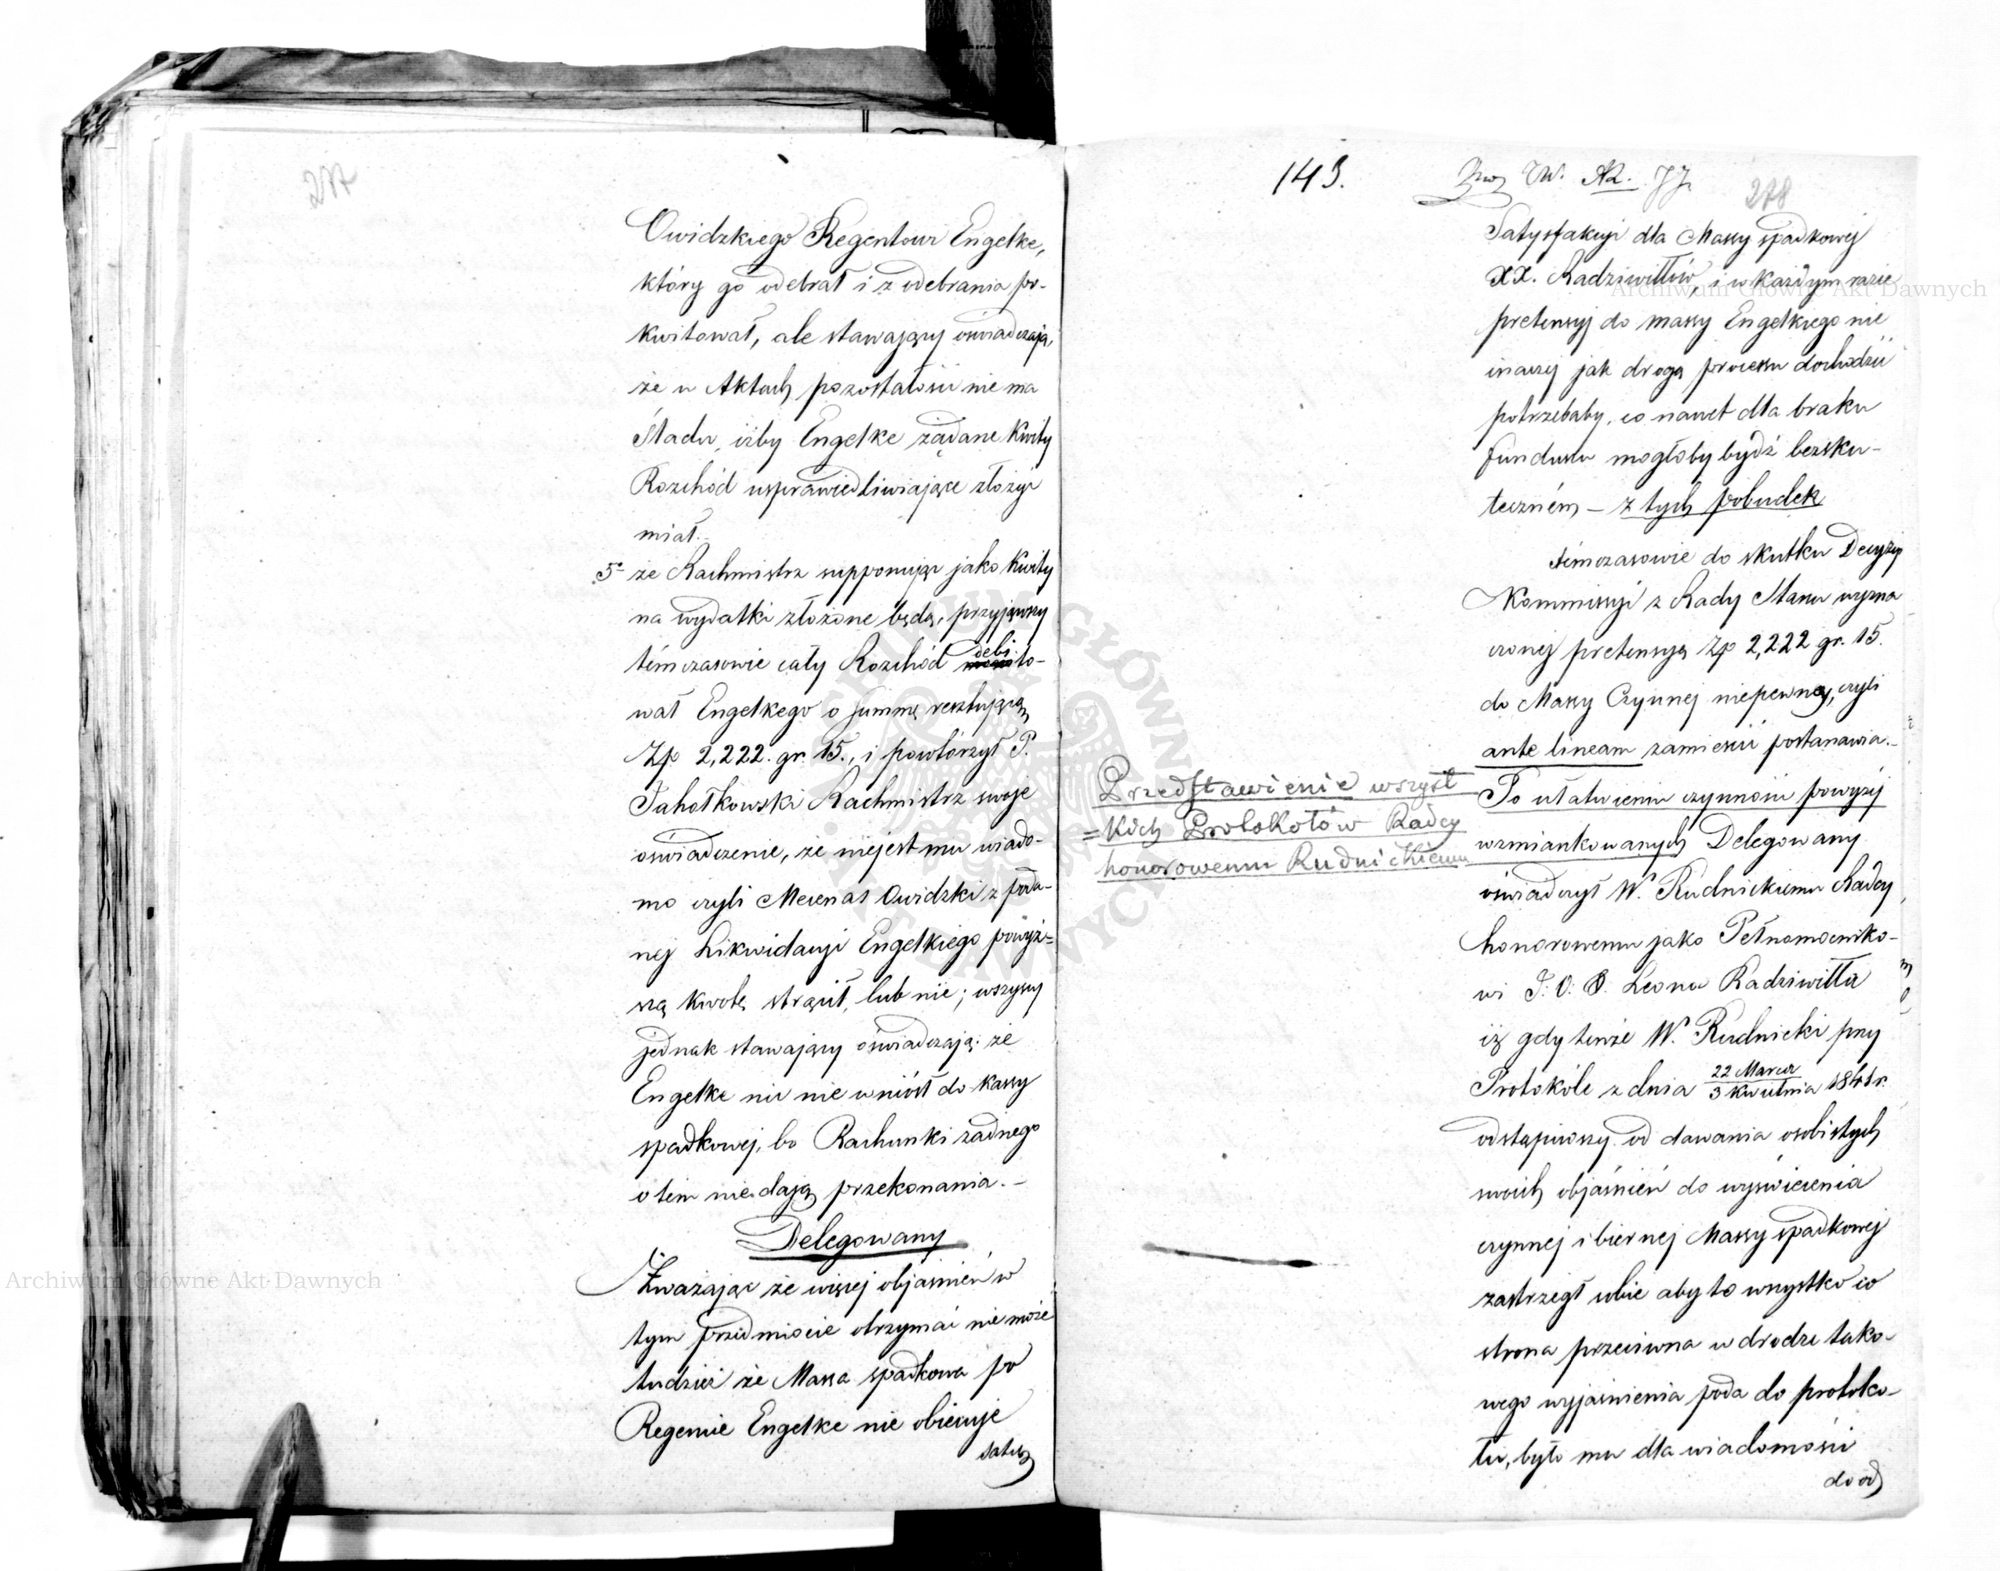 277
Owidzkiego Regentowi Engelke,
który go odebrał i z odebrania po-
kwitował, ale stawający oświadczają,
że w Aktach pozostałości nie ma
Śladu, iżby Engelke żądane Kwity
Rozchód usprawiedliwiające złożyć
miał.
5- że Rachmistrz supponując jako Kwity
na wydatki złożone będą, przyjąwszy
témczasowie cały Rozchód debi
to-
wał Engelkego o Summę resztującą
Zp 2,222. gr. 15., i powtórzył P.
Rachmistrz swoje
oświadczenie, że niejest mu wiado-
mo czyli Mecenas Owidzki z poda-
nej Likwidacyi Engelkiego powyż=
szą kwotę strącił, lub nie; wszyscy
jednak stawający oświadczają: że
Engelke nic nie wniósł do kassy
spadkowej, bo Rachunki żadnego
o tem niedają przekonania. –
Delegowany
Zważając że więcej objaśnień w
tym przedmiocie otrzymać nie może
tudzież że Massa spadkowa po
Regencie Engelke nie obiecuje
satys
143.
278
Satysfakcyi dla Massy spadkowej
XX. Radziwiłłów, i w każdym razie
pretensyj do massy Engelkiego nie
inaczej jak drogą processu dochodzić
potrzebaby, co nawet dla braku
funduszu mogłoby bydź bezsku-
teczném – z tych pobudek
témczasowie do skutku Decyzyi
Kommissyi z Rady Stanu wyzna
czonej pretensyą Zp 2,222 gr. 15.
do Massy Czynnej niepewney, czyli
ante lineam zamieścić postanawia. –
Przedstawienie wszyst
=kich Protokołów Radcy
honorowemu Rudnickiemu
Po ułatwieniu czynności powyżej
wzmiankowanych Delegowany
oświadczył W. Rudnickiemu Radcy
honorowemu jako Pełnomocniko-
wi J. O. X. Leona Radziwiłła
iż gdy tenże W. Rudnicki przy
Protokóle z dnia 22 Marca
3 Kwietnia 1841 r.
odstąpiwszy od dawania osobistych
swoich objaśnień do wyświecenia
czynnej i biernej Massy spadkowej
zastrzegł sobie aby to wszystko co
strona przeciwna w drodze tako-
wego wyjaśnienia poda do protoko-
łu, było mu dla wiadomości
do od
Archiwum Główne Akt Dawnych
Archiwum Główne Akt Dawnych
ARCHIWUM GŁÓWNE AKT DAWNYCH